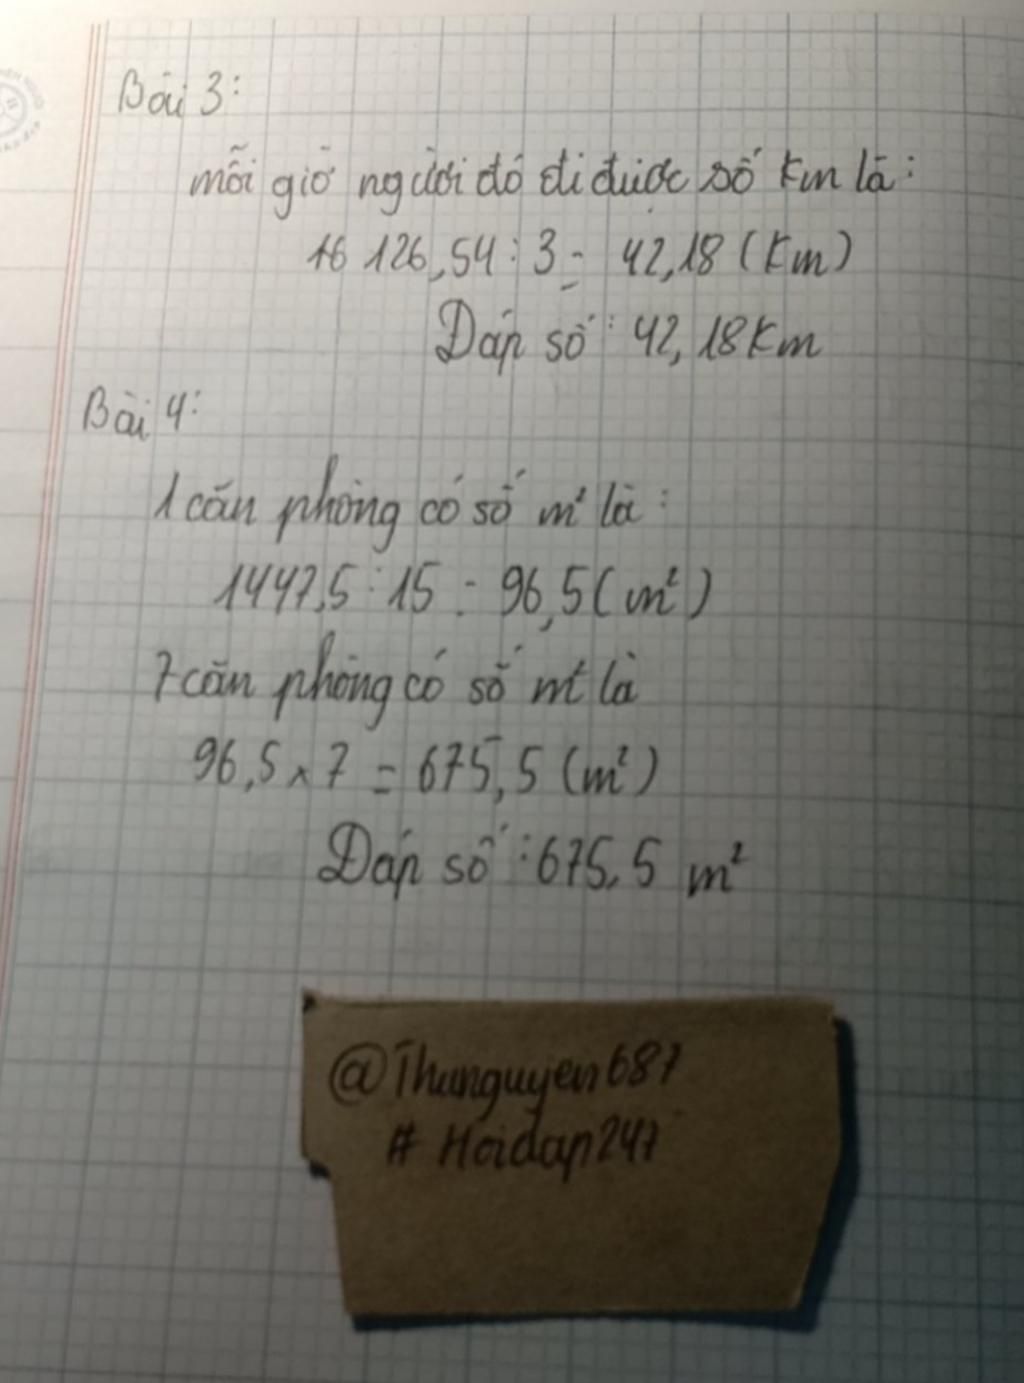 Bài 3:
mỗi giờ người đó đi được số km là:
126,54 : 3 = 42,18 (km)
Đáp số: 42,18 km
Bài 4:
1 căn phòng có số m² là:
1447,5 : 15 = 96,5 (m²)
7 căn phòng có số m² là
96,5 x 7 = 675,5 (m²)
Đáp số: 675,5 m²
@Thunguyen687
# Hoidap247